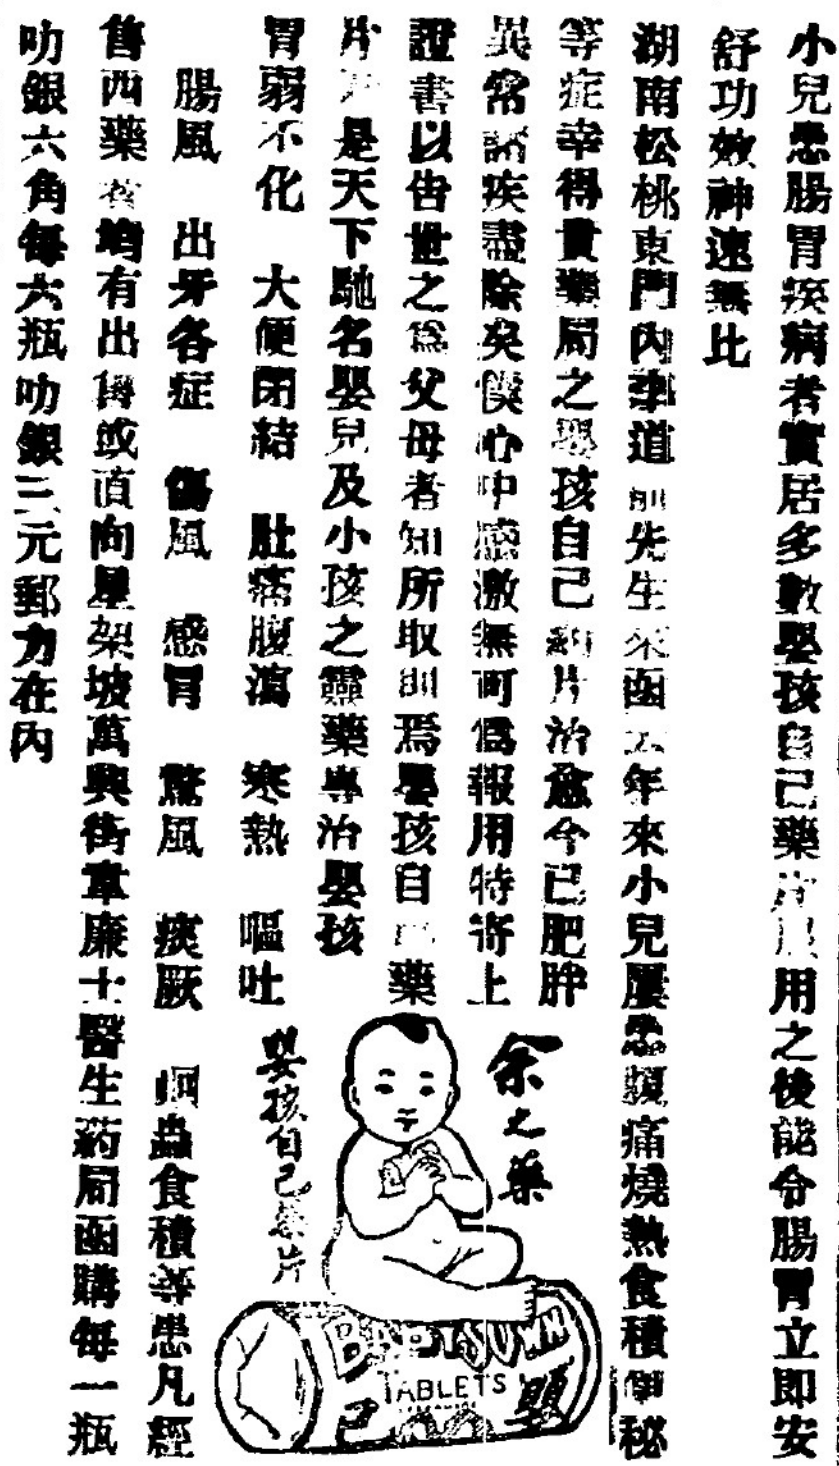 小兒患腸胃疾病者實居多數嬰孩自己藥片服用之後能令腸胃立即安
舒功效神速無比
湖南松桃東門內李道 先生來函云年來小兒屢患腹痛燒熱食積便秘
等症幸得貴藥局之嬰孩自己葯片治愈今已肥胖
異常諸疾盡除矣僕心中感激無可爲報用特寄上
證書以告世之爲父母者知所取 焉嬰孩自己藥
片 是天下馳名嬰兒及小孩之靈藥專治嬰孩
胃弱不化 大便閉結 肚痛腹瀉 寒熱 嘔吐
腸風 出牙各症 傷風 感冒 驚風 痰厥 蛔蟲食積等患凡經
售西藥者均有出售或直向星架坡萬興街韋廉士醫生葯局函購每一瓶
叻銀六角每六瓶叻銀三元郵力在內
余之藥
嬰孩自己藥片
BABY'S OWN
TABLETS